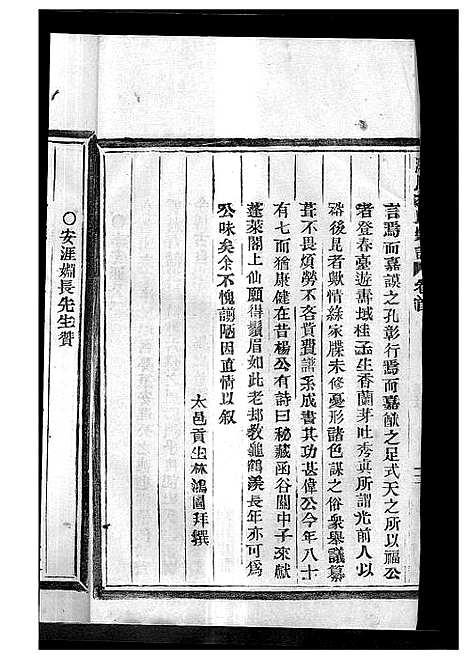 言焉而嘉謨之孔彰行焉而嘉猷之足式天之所以福公
者登春臺遊壽域桂子生香蘭芽吐秀真所謂光前人以
裕後昆者歟情緣家牒未修憂形諸色謀之俗衆舉議纂
葺不畏煩勞不吝貲費譜系成書其功甚偉公今年八十
有七而猶康健在昔楊公有詩曰秘藏函谷關中子來獻
蓬萊閣上仙願得鬚眉如此老却教龜鶴羨長年亦可爲
公味矣余不愧謭陋因直情以叙
太邑貢生林鴻圖拜撰
〇安涯嫺長先生贊